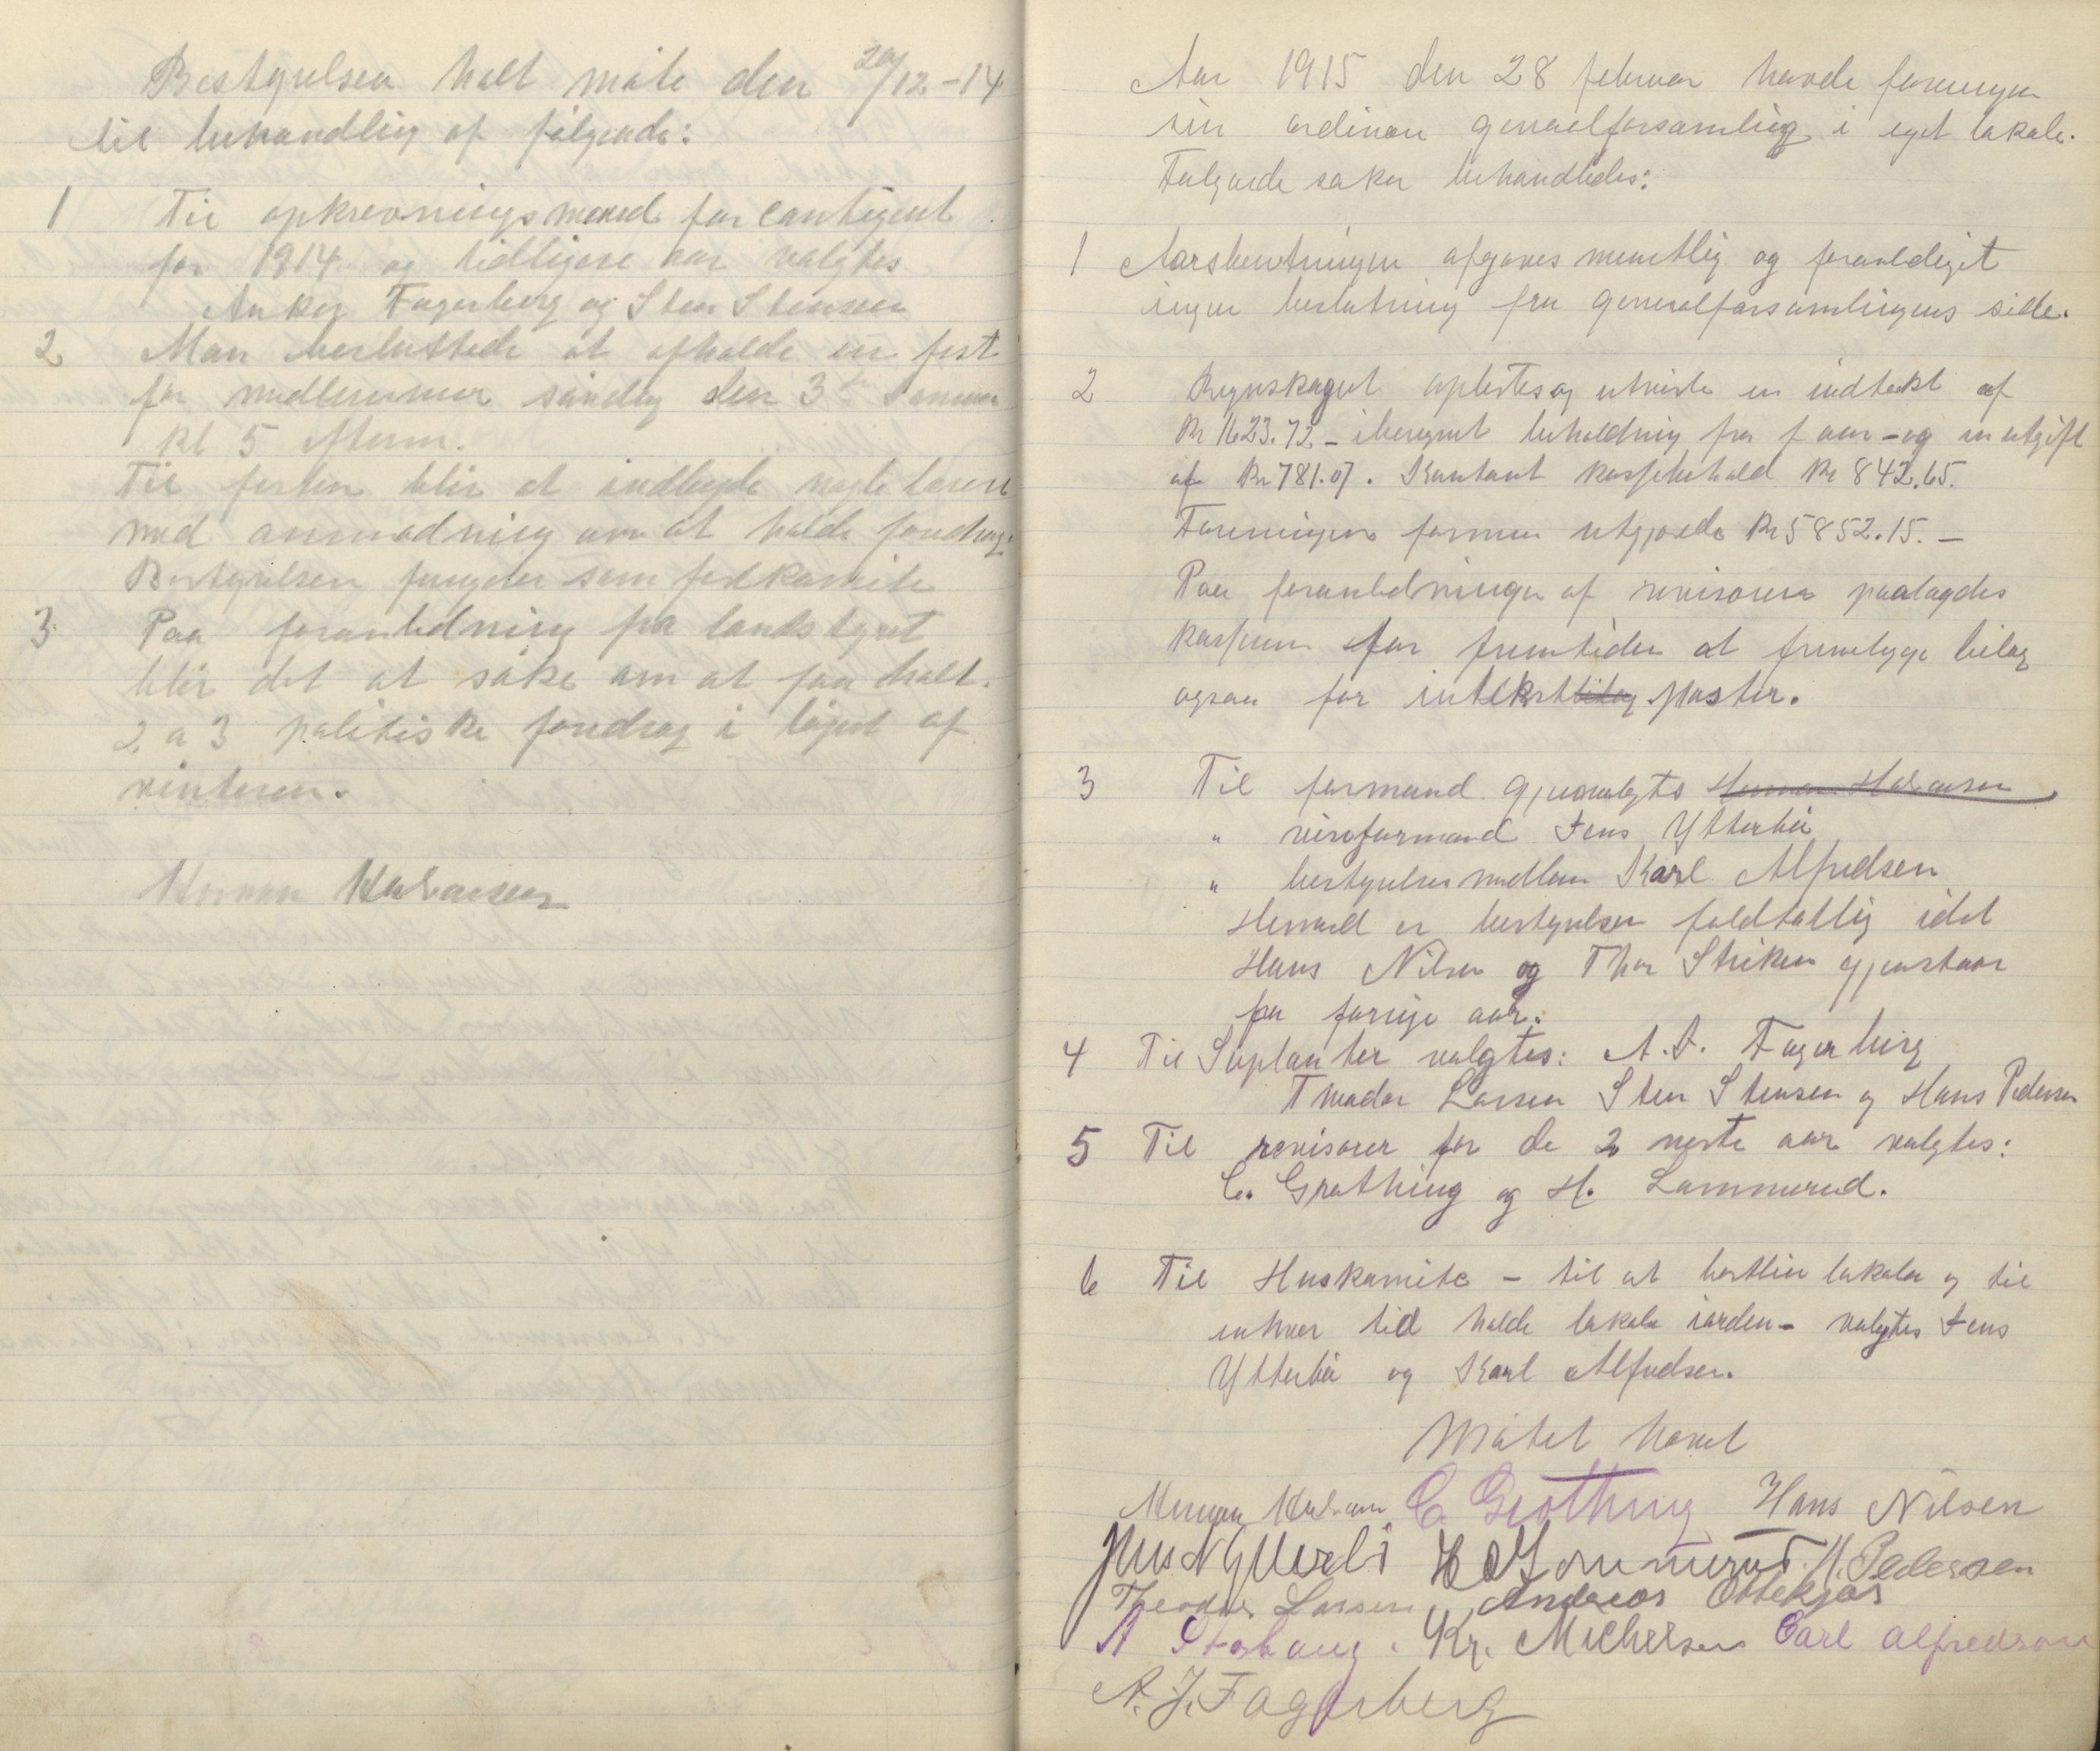 Bestyrelsen halt møte den 20/12-14
til behandling af følgende:
1 Til opkrevningsmænd for contigent
for 1914 og tidligere aar valgtes
Anker Fagerberg og Sten Stensen
2 Man besluttede at afholde en fest
for medlemmer søndag den 3de Januar
kl 5 efterm.
Til festen blir at indbyde nogle lærere
med anmodning om at holde foredrag.
Bestyrelsen fungerer som festkomite
3 Paa foranledning fra landstyret
blir det at søke om at faa holt
2 a 3 politiske foredrag i løpet af
vinteren.
Herman Halvorsen
Aar 1915 den 28 februar havde foreningen
sin ordinære generalforsamling i eget lokale.
Følgende saker behandledes:
1 Aarsberetningen afgaves muntlig og foranlediget
ingen beslutning fra generalforsamlingens side.
2 Regnskapet oplestes og utviste en indtekt af
Kr 1623.72 - iberegnet beholdning fra f aar - og en utgift
af Kr 781.07. Kontant kassebehold Kr 842.65.
Foreningens formue utgjorde Kr 5852.15. -
Paa foranledningen af revisorerne paalagdes
kasseren for fremtiden at fremlegge bilag
ogsaa for intekstbilag poster.
3 Til formand gjenvalgtes Herman Halvorsen
" viseformand Jens Ytterbø
" bestyrelsesmedlem Karl Alfredsen
Hermed er bestyrelsen fuldtallig idet
Hans Nilsen og Thor gjenstaar
fra forrige aar.
4 Til Suplanter valgtes: A. J. Fagerberg
Theodor Larsen Sten Stensen og Hans Pedersen
5 Til revisorer for de 2 neste aar valgtes:
C. Grøthing og H. Lammerud.
6 Til Huskomite - til at bortleie lokaler og til
enhver tid holde lokale iorden - valgtes Jens
Ytterbø og Karl Alfredsen.
Møtet hævet
Herman Halvorsen C. Grøthing Hans Nilsen
H. Pedersen
Theodor Larsen Andreas
A Kr. Michelsen Carl Alfredsen
A. J. Fagerberg